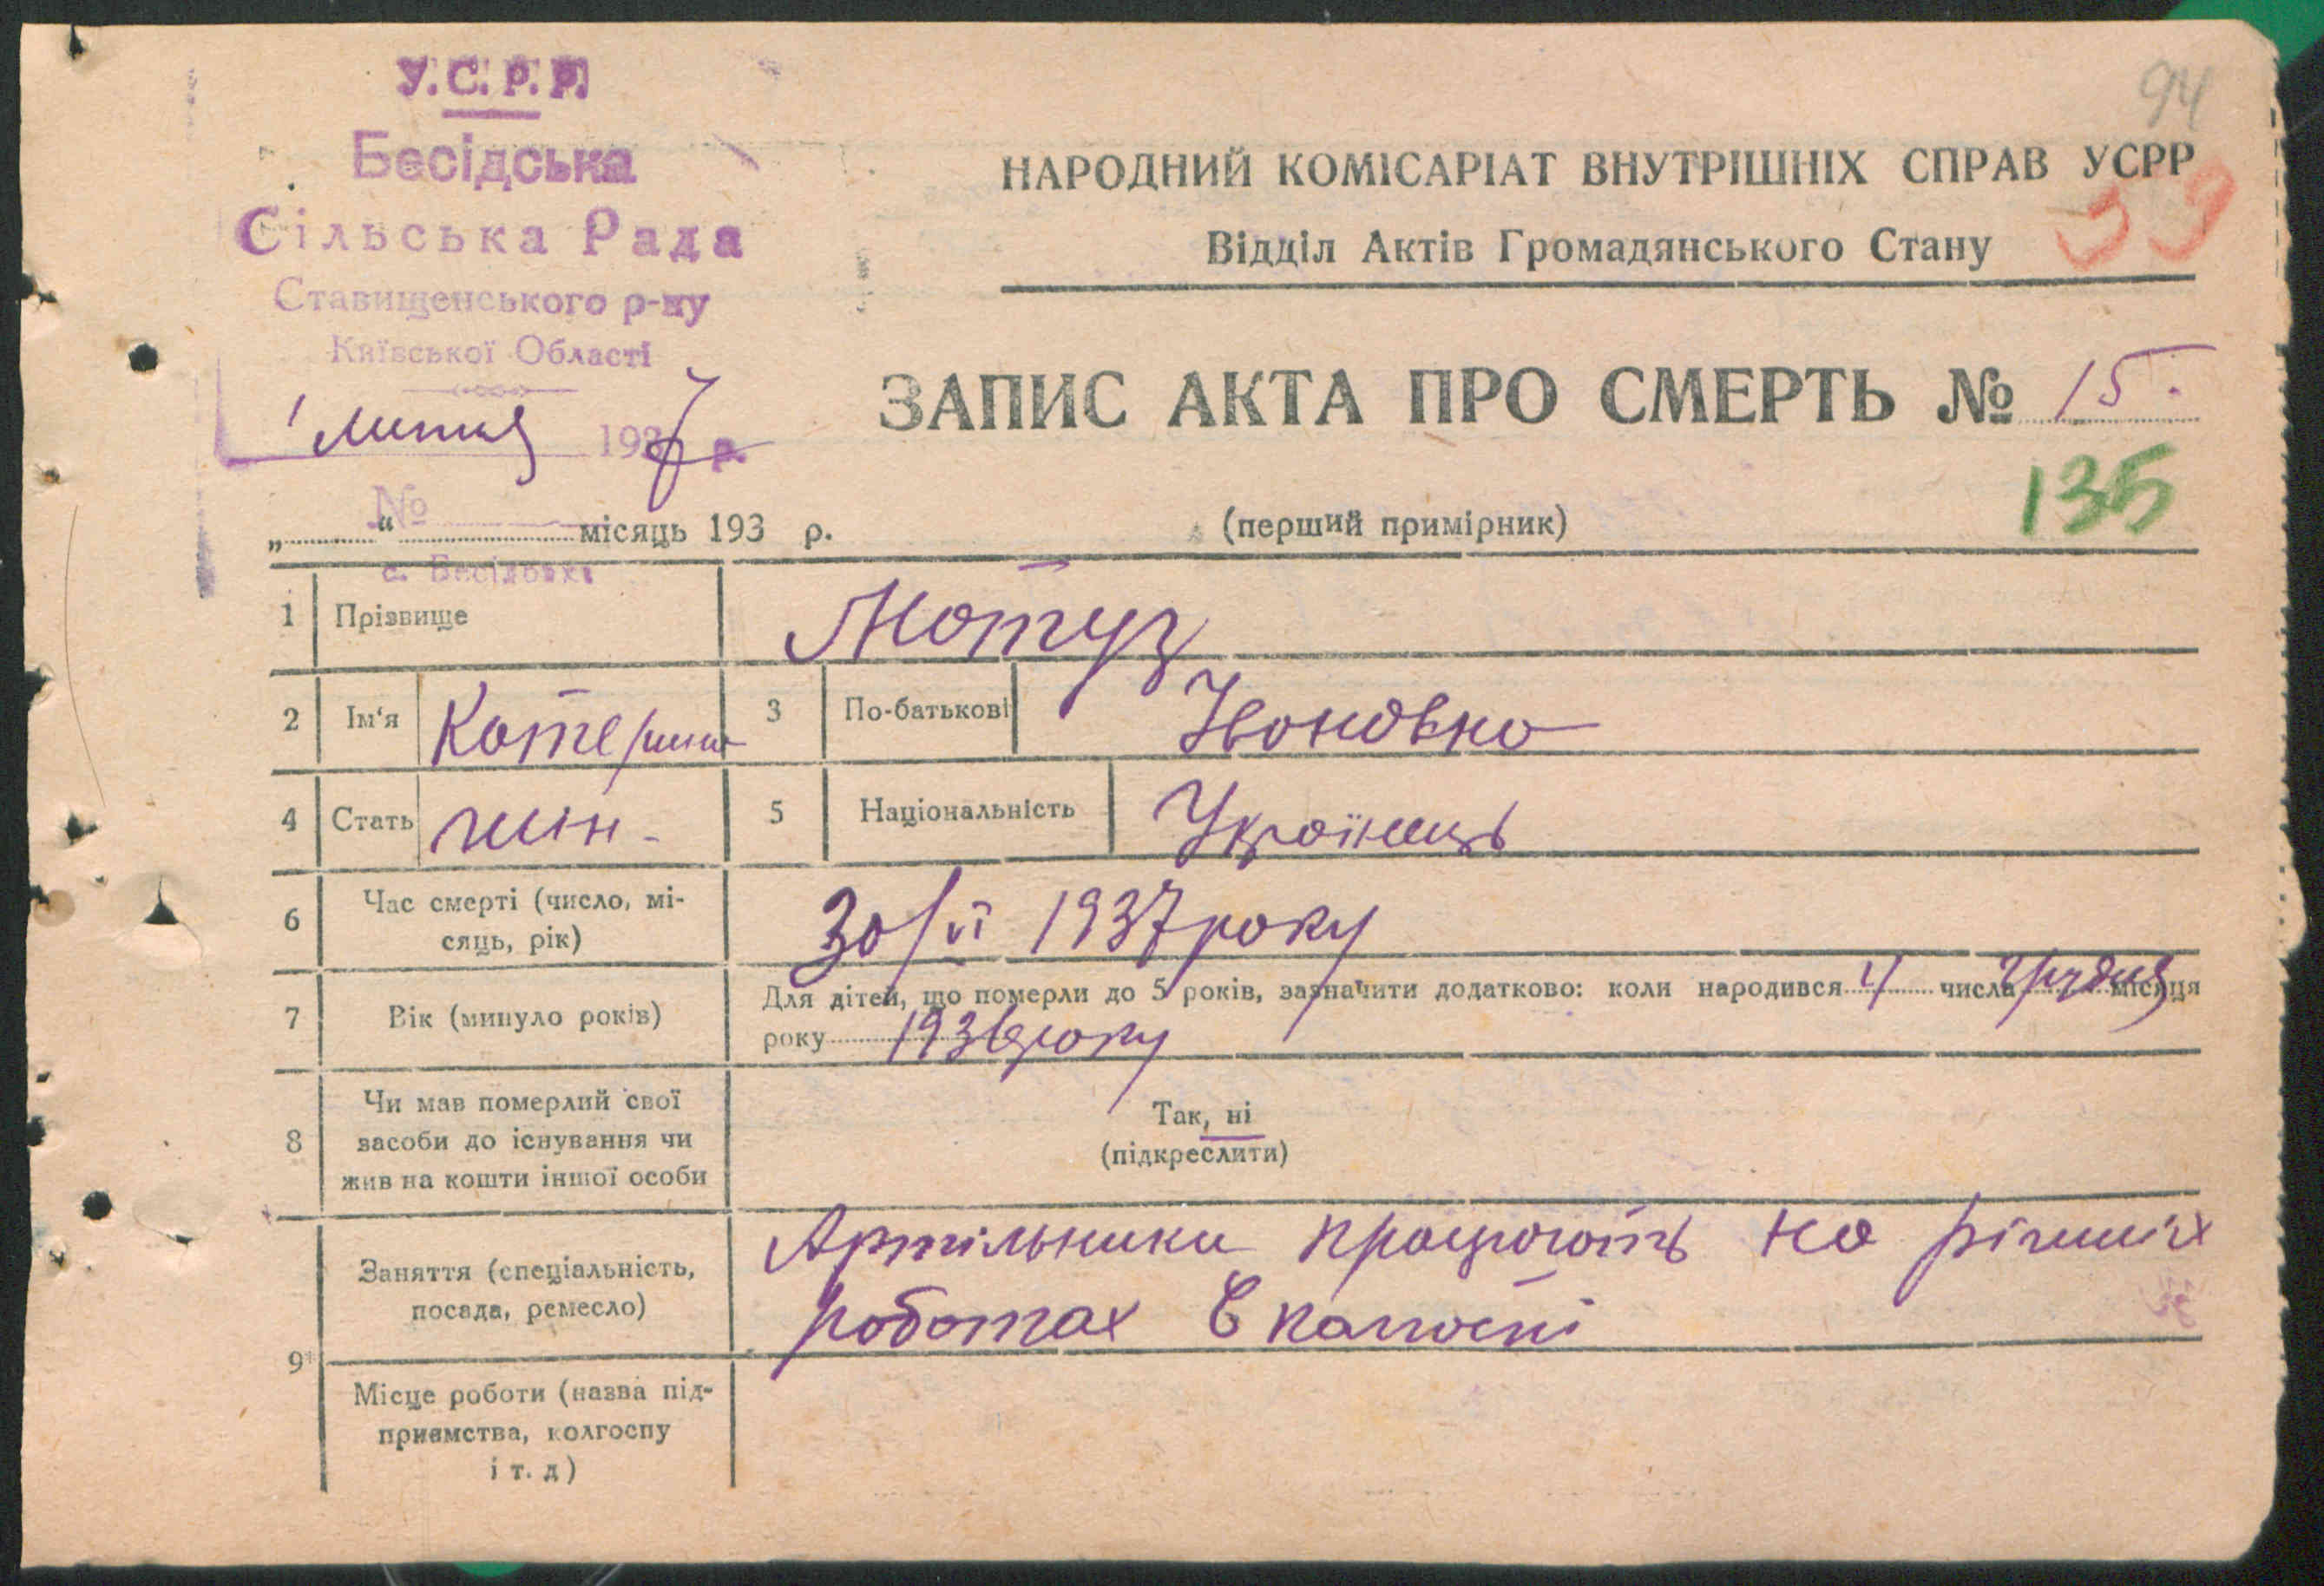 94
У.С.Р.Р.
Бесідська
Сільська Рада
Ставищенського р-ну
Київської Області
1 липня 1937 р.
№
с. Бесідка
НАРОДНИЙ КОМІСАРІАТ ВНУТРІШНІХ СПРАВ УСРР
39
Відділ Актів Громадянського Стану
ЗАПИС АКТА ПРО СМЕРТЬ № 15.
135
„ “ місяць 193 р.
(перший примірник)
1 Прізвище Мотуз
2 Ім'я Катерина 3 По-батькові Івановна
4 Стать жін- 5 Національність Українець
6 Час смерті (число, мі-
сяць, рік) 30/VI 1937 року
7 Вік (минуло років) Для дітей, що померли до 5 років, зазначити додатково: коли народився 4 числа грудня місяця
року 1936 року
8 Чи мав померлий свої
засоби до існування чи
жив на кошти іншої особи
Так, ні
(підкреслити)
9 Заняття (спеціальність,
посада, ремесло)
Артільники працюють на різних
роботах в
Місце роботи (назва під-
приємства, колгоспу
і т. д)